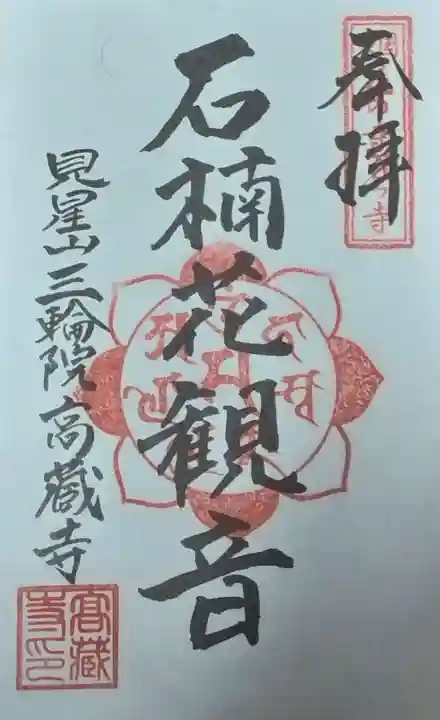 奉拝
石楠花観音
見星山三輪院高蔵寺
高蔵
寺印